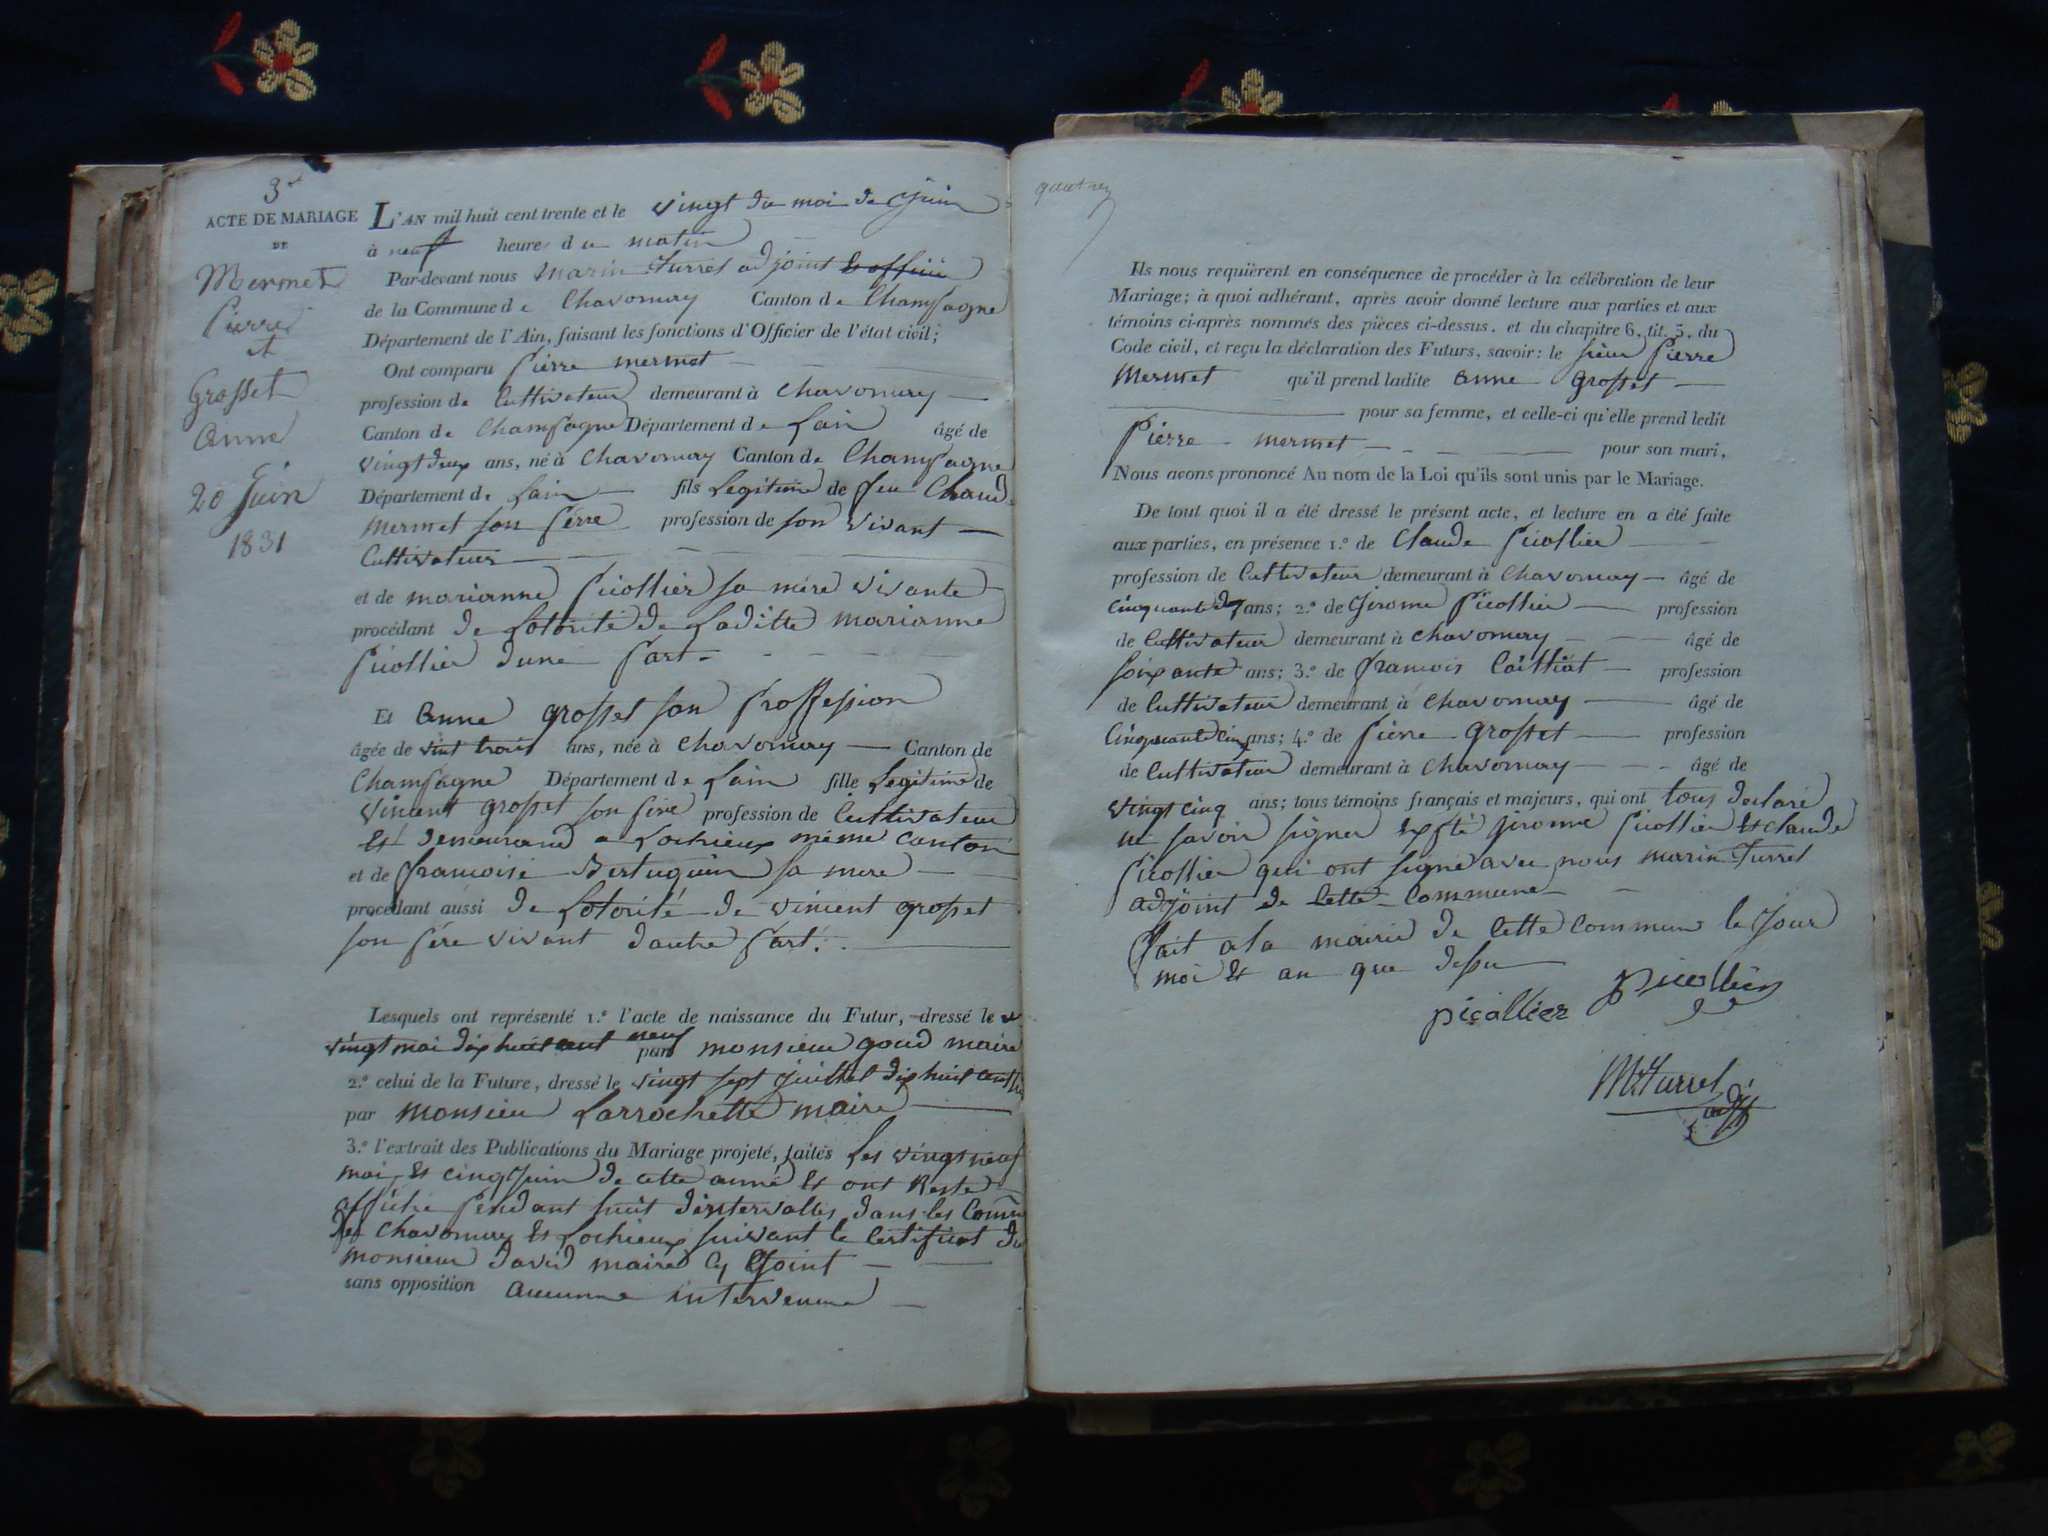 3e
ACTE DE MARIAGE
DE
Mermet
Pierre
et
Grosset
Anne
20 Juin
1831
L'AN mil huit cent trente et le vingt du moi de Juin
à neuf heures du matin
Par-devant nous marin turrel adjoint
de la Commune de Chavornay Canton de Champagne
Département de l'Ain, faisant les fonctions d'Officier de l'état civil;
Ont comparu Pierre mermet
profession de Cultivateur demeurant à Chavornay
Canton de Champagne Département de Lain âgé de
vingt deux ans, né à Chavornay Canton de Champagne
Département de Lain fils Legitime de feu Claud
mermet son Pérre profession de son vivant
Cultivateur
et de marianne Picollier sa mère vivante
procédant de Lotorité de Laditte marianne
Picollier dune Part
Et Anne grosset san Proffession
âgée de vint trois ans, née à Chavornay Canton de
Champagne Département de Lain fille Legitime de
vincent grosset son Père profession de Cultivateur
et demeurand a Lochieux même Canton
et de francoise Bertuquin sa mere
procédant aussi de Lotorité de vincent grosset
son Pére vivant dautre Part.
Lesquels ont représenté 1.º l'acte de naissance du Futur, dressé le
vingt mai dix huit cent neuf par monsieur goud maire
2.º celui de la Future, dressé le vingt sept Juillet dix huit cent
par monsieur Larrochette maire
3.º l'extrait des Publications du Mariage projeté, faites Les vingt neuf
mai et cinq Juin de cette anné et ont Resté
affiche Pendant huit dintervalles dans les Comm
des Chavornay et Lochieux suivant le Certificat du
monsieur david maire Cy Joint
sans opposition aucunne intervenue
Ils nous requièrent en conséquence de procéder à la célébration de leur
Mariage; à quoi adhérant, après avoir donné lecture aux parties et aux
témoins ci-après nommés des pièces ci-dessus, et du chapitre 6, tit. 5, du
Code civil, et reçu la déclaration des Futurs, savoir: le sieur Pierre
Mermet qu'il prend ladite Anne Grosset
pour sa femme, et celle-ci qu'elle prend ledit
Pierre mermet pour son mari,
Nous avons prononcé Au nom de la Loi qu'ils sont unis par le Mariage.
De tout quoi il a été dressé le présent acte, et lecture en a été faite
aux parties, en présence 1.º de Claude Picollier
profession de Cultivateur demeurant à Chavornay âgé de
cinquante ans; 2.º de Jirome Picollier profession
de Cultivateur demeurant à Chavornay âgé de
soixante ans; 3.º de francois Cailliat profession
de Cultivateur demeurant à Chavornay âgé de
Cinquante cinq ans; 4.º de Pierre Grosset profession
de Cultivateur demeurant à Chavornay âgé de
vingt cinq ans; tous témoins français et majeurs, qui ont tous declaré
ne savoir signer Jirome Picollier et Claude
Picollier qui ont signé avec nous marin turrel
adjoint de Cette Commune
fait a la mairie de Cette Commune le Jour
moi et an que dessu
picollier picollier
M. turrel
adjt